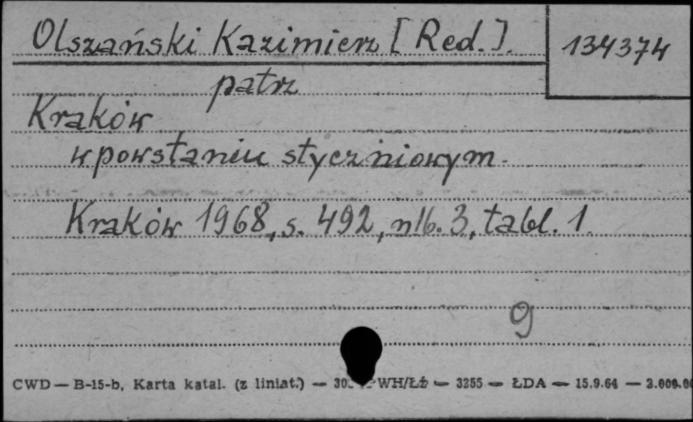 Olszański Kazimierz [Red.].
134374
patrz
Kraków
w powstaniu styczniowym.
Kraków 1968, s. 492, nlb. 3, tabl. 1.
9
CWD — B-15-b, Karta katal. (z liniat.) — WH/Łź — 3255 — ŁDA — 15.9.64